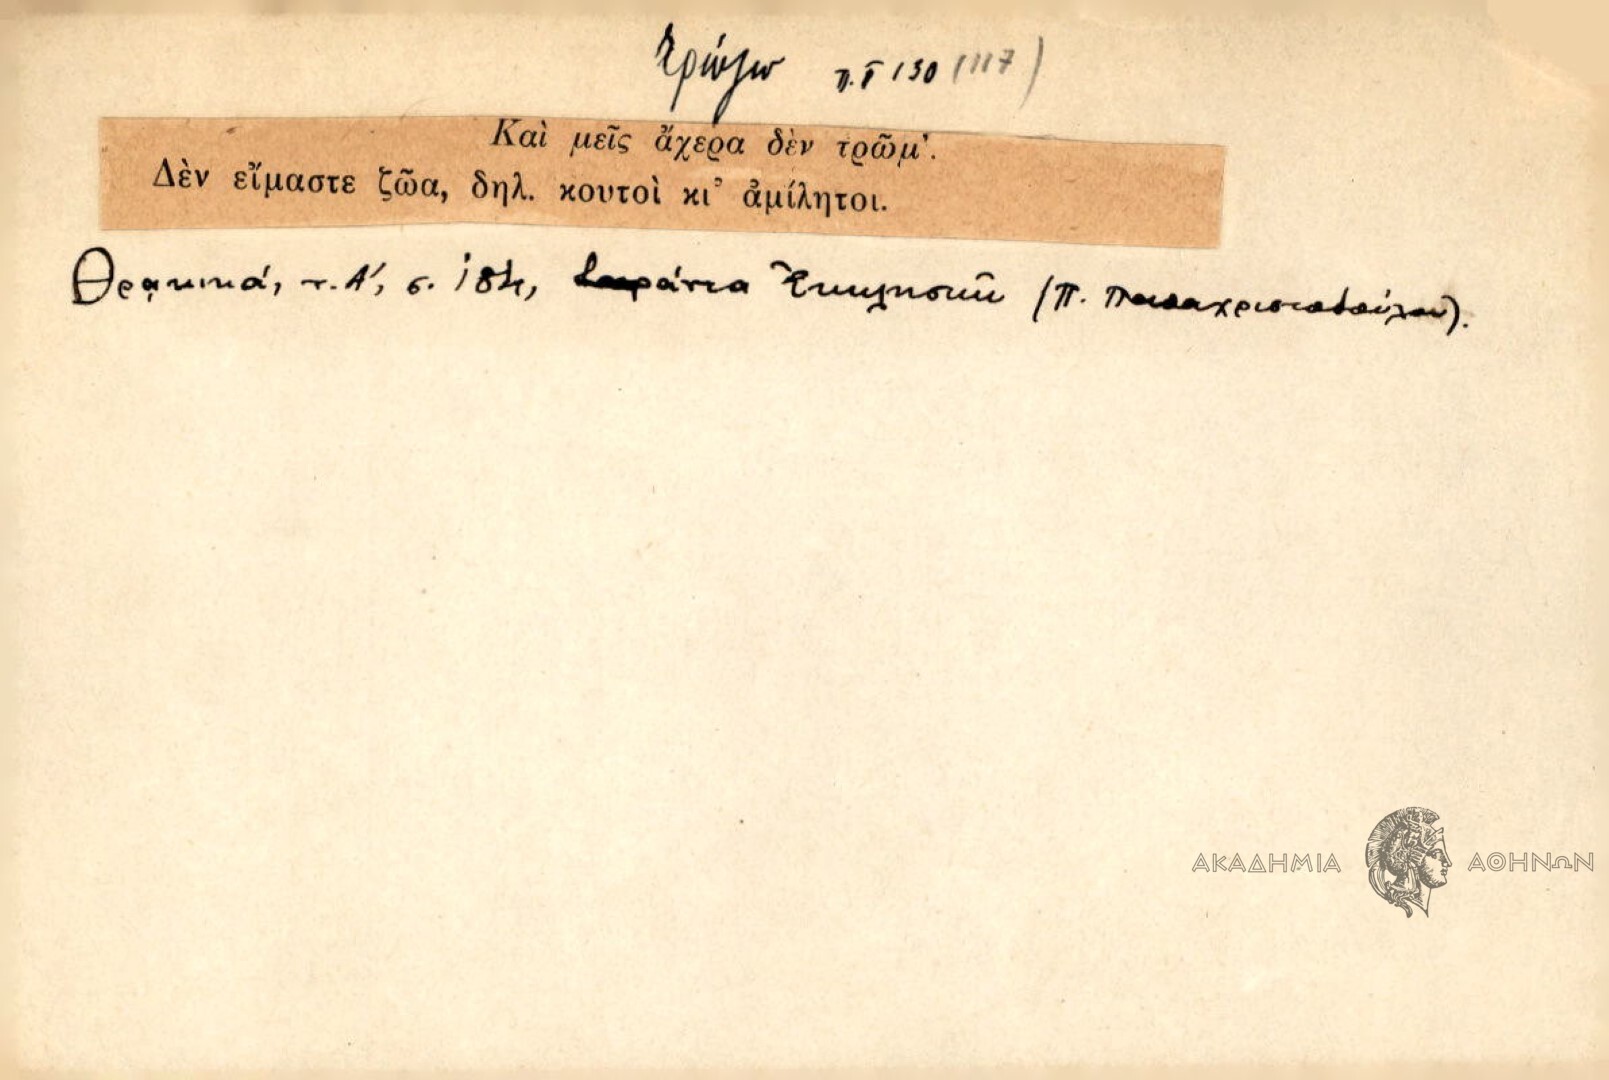 τρώγω π.Γ 130 (117)
Καὶ μεῖς ἄχερα δὲν τρῶμ'.
Δὲν εἴμαστε ζῶα, δηλ. κουτοὶ κι' ἀμίλητοι.
Θρᾳκικά, τ. Α', σ. 184, Σαράντα Ἐκκλησιῶν (Π. Παπαχριστοδούλου).
ΑΚΑΔΗΜΙΑ ΑΘΗΝΩΝ